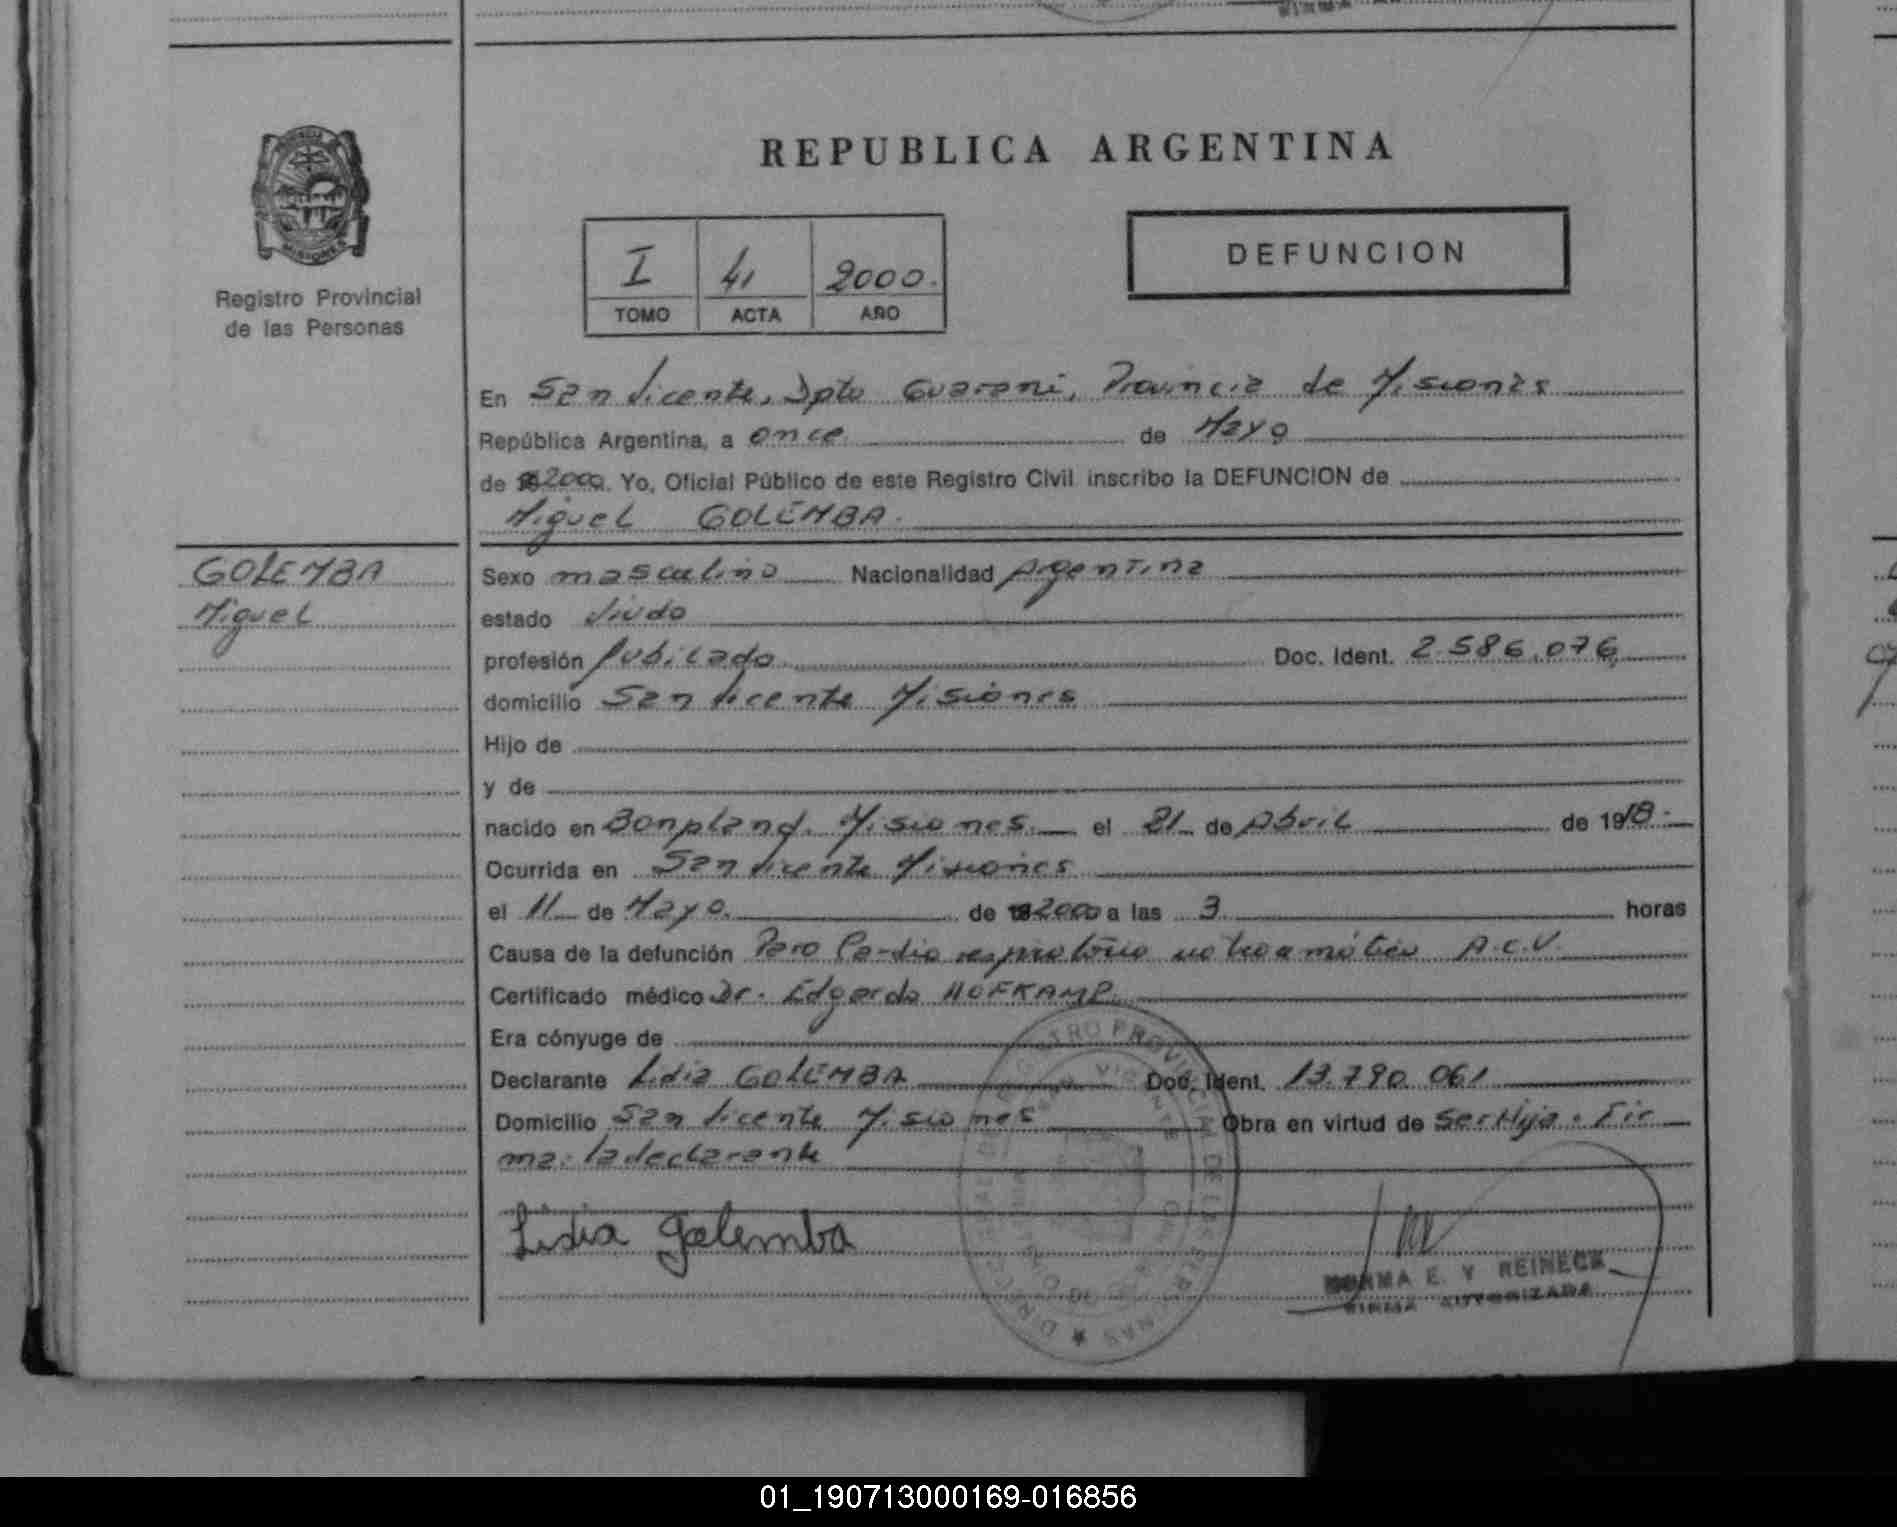 REPUBLICA ARGENTINA
Registro Provincial
de las Personas
I 41 2000.
TOMO ACTA AÑO
DEFUNCION
En San Vicente, Dpto Guaraní, Provincia de Misiones
República Argentina, a once de Mayo
de 2000. Yo, Oficial Público de este Registro Civil inscribo la DEFUNCION de
Miguel GOLEMBA.
GOLEMBA
Miguel
Sexo masculino Nacionalidad Argentina
estado Viudo
profesión Jubilado Doc. Ident. 2.586.076,
domicilio San Vicente Misiones
Hijo de
y de
nacido en Bonpland, Misiones. el 21 de Abril de 1918.
Ocurrida en San Vicente Misiones
el 11 de Mayo. de 2000 a las 3 horas
Causa de la defunción Paro Cardio respiratorio no traumático A.C.V.
Certificado médico Dr. Edgardo HOFKAMP.
Era cónyuge de
Declarante Lidia GOLEMBA Doc. Ident. 13.790.061
Domicilio San Vicente Misiones Obra en virtud de ser Hija. Fir
ma: la declarante
Lidia Golemba
NORMA E. Y REINECK
FIRMA AUTORIZADA
01_190713000169-016856